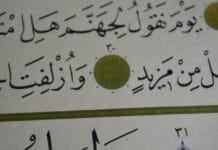 يَوْمَ نَقُولُ لِجَهَنَّمَ هَلِ
مِنْ مَزِيدٍ ٣٠ وَاُزْلِفَتِ
٣١